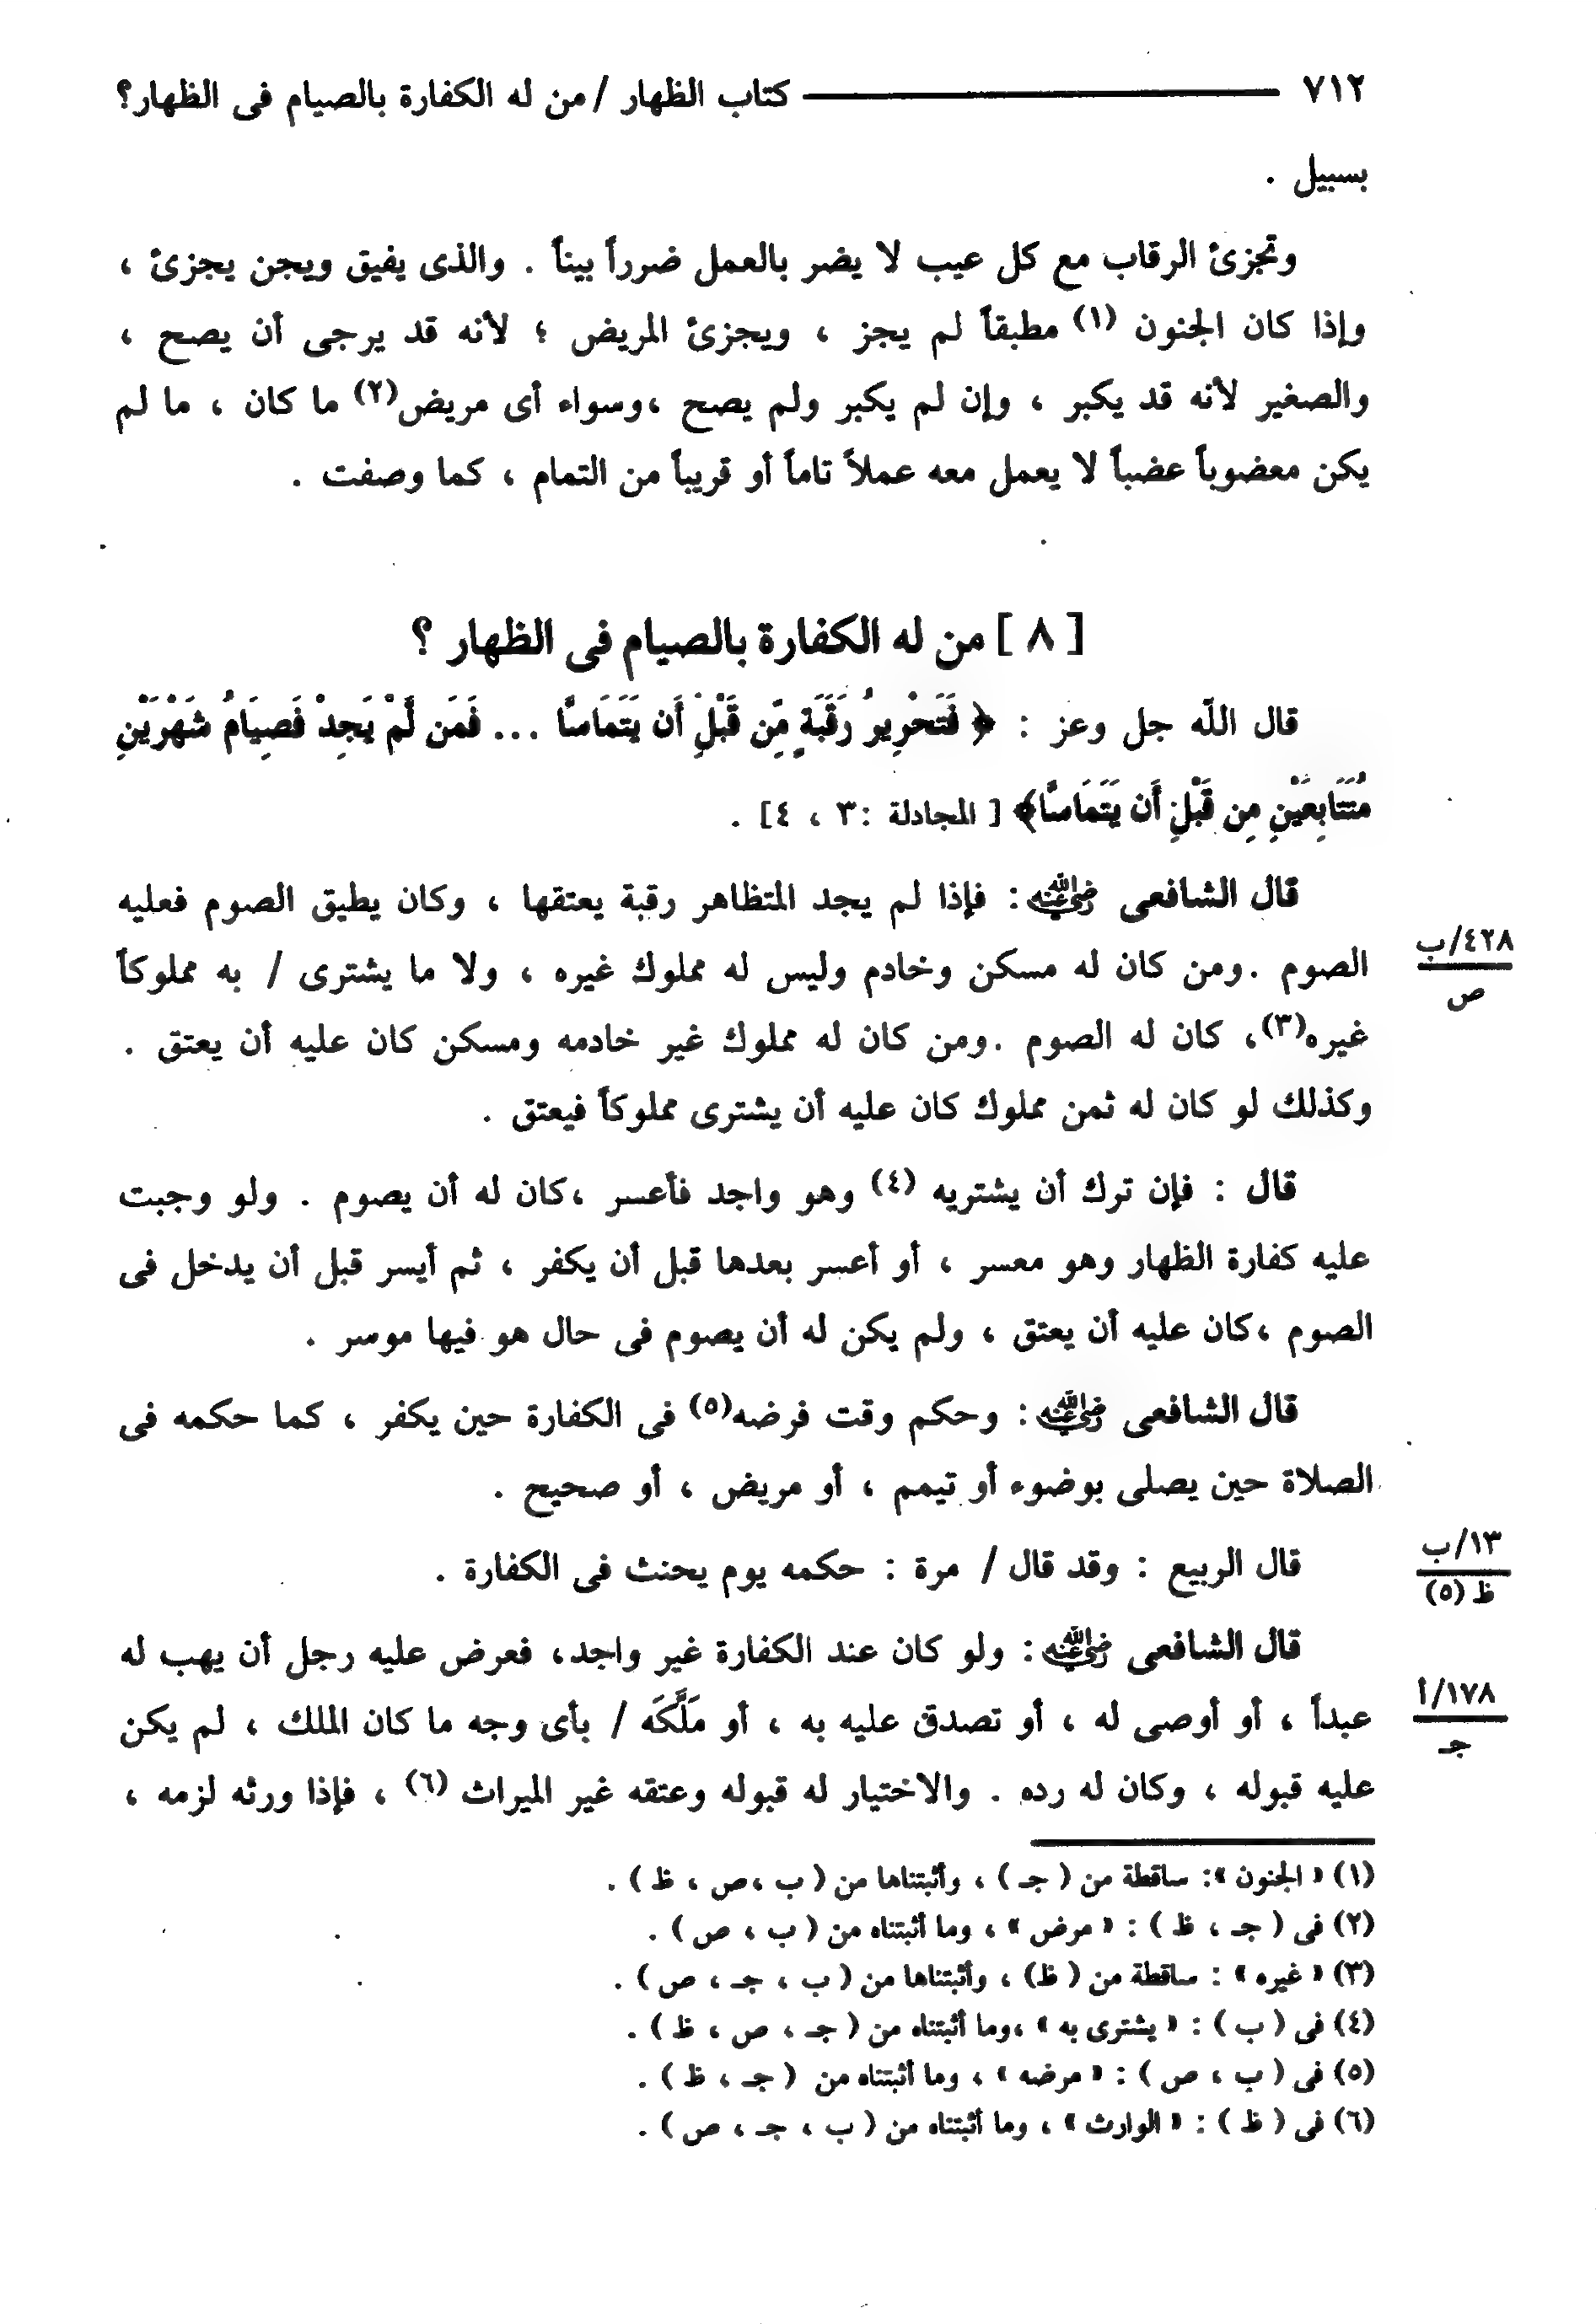 ٧١٢ ــــــــ كتاب الظهار / من له الكفارة بالصيام فى الظهار؟
بسبيل .
وتجزئ الرقاب مع كل عيب لا يضر بالعمل ضرراً بيناً . والذى يفيق ويجن يجزئ ،
وإذا كان الجنون (١) مطبقاً لم يجز ، ويجزئ المريض ؛ لأنه قد يرجى أن يصح ،
والصغير لأنه قد يكبر ، وإن لم يكبر ولم يصح ،وسواء أى مريض(٢) ما كان ، ما لم
يكن معضوباً عضباً لا يعمل معه عملاً تاماً أو قريباً من التمام ، كما وصفت .
[ ٨ ] من له الكفارة بالصيام فى الظهار ؟
قال الله جل وعز : ﴿ فَتَحْرِيرُ رَقَبَةٍ مِّن قَبْلِ أَن يَتَمَاسَّا ... فَمَن لَّمْ يَجِدْ فَصِيَامُ شَهْرَيْنِ
مُتَتَابِعَيْنِ مِن قَبْلِ أَن يَتَمَاسَّا﴾ [ المجادلة :٣ ، ٤] .
قال الشافعى رضي الله عنه : فإذا لم يجد المتظاهر رقبة يعتقها ، وكان يطيق الصوم فعليه
الصوم .ومن كان له مسكن وخادم وليس له مملوك غيره ، ولا ما يشترى / به مملوكاً
٤٢٨/ب
ص
غيره(٣)، كان له الصوم .ومن كان له مملوك غير خادمه ومسكن كان عليه أن يعتق .
وكذلك لو كان له ثمن مملوك كان عليه أن يشترى مملوكاً فيعتق .
قال : فإن ترك أن يشتريه (٤) وهو واجد فأعسر ،كان له أن يصوم . ولو وجبت
عليه كفارة الظهار وهو معسر ، أو أعسر بعدها قبل أن يكفر ، ثم أيسر قبل أن يدخل فى
الصوم ،كان عليه أن يعتق ، ولم يكن له أن يصوم فى حال هو فيها موسر .
قال الشافعى رضي الله عنه : وحكم وقت فرضه(٥) فى الكفارة حين يكفر ، كما حكمه فى
الصلاة حين يصلى بوضوء أو تيمم ، أو مريض ، أو صحيح .
قال الربيع : وقد قال / مرة : حكمه يوم يحنث فى الكفارة .
١٣/ب
ظ (٥)
قال الشافعى رضي الله عنه : ولو كان عند الكفارة غير واجد، فعرض عليه رجل أن يهب له
عبداً ، أو أوصى له ، أو تصدق عليه به ، أو مَلَّكَه / بأى وجه ما كان الملك ، لم يكن
١٧٨/أ
جـ
عليه قبوله ، وكان له رده . والاختيار له قبوله وعتقه غير الميراث (٦) ، فإذا ورثه لزمه ،
(١) « الجنون »: ساقطة من ( جـ ) ، وأثبتناها من ( ب ،ص ، ظ ) .
(٢) فى ( جـ ، ظ ) : « مرض » ، وما أثبتناه من ( ب ، ص ) .
(٣) « غيره » : ساقطة من ( ظ) ، وأثبتناها من ( ب ، جـ ، ص ) .
(٤) فى ( ب ) : « يشترى به » ،وما أثبتناه من ( جـ ، ص ، ظ ) .
(٥) فى ( ب ، ص ) : « مرضه » ، وما أثبتناه من ( جـ ، ظ ) .
(٦) فى ( ظ ) : « الوارث » ، وما أثبتناه من ( ب ، جـ ، ص ) .